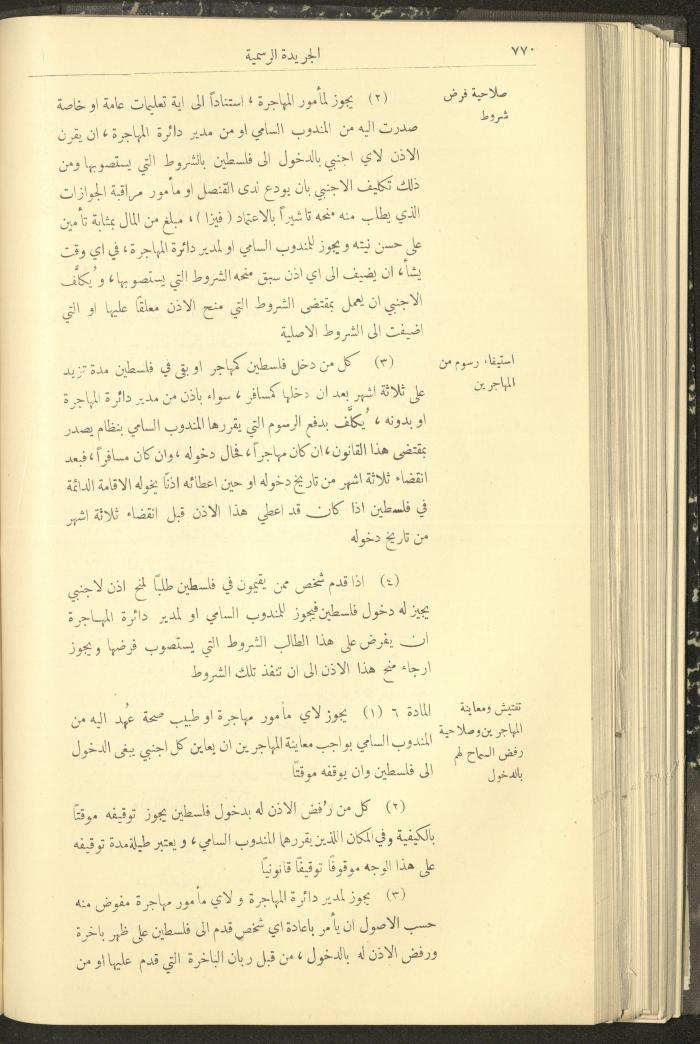 ٧٧٠
الجريدة الرسمية
صلاحية فرض
شروط
(٢) يجوز لمأمور المهاجرة ، استناداً الى اية تعليمات عامة او خاصة
صدرت اليه من المندوب السامي او من مدير دائرة المهاجرة ، ان يقرن
الاذن لاي اجنبي بالدخول الى فلسطين بالشروط التي يستصوبها ومن
ذلك تكليف الاجنبي بان يودع لدى القنصل او مأمور مراقبة الجوازات
الذي يطلب منه منحه تاشيراً بالاعتماد ( فيزا ) ، مبلغ من المال بمثابة تأمين
على حسن نيته ويجوز للمندوب السامي او لمدير دائرة المهاجرة ، في اي وقت
يشأ ، ان يضيف الى اي اذن سبق منحه الشروط التي يستصوبها ، و يُكلَّف
الاجنبي ان يعمل بمقتضى الشروط التي منح الاذن معلقا عليها او التي
اضيفت الى الشروط الاصلية
استيفاء رسوم من
المهاجرين
(٣) كل من دخل فلسطين كمهاجر او بقى في فلسطين مدة تزيد
على ثلاثة اشهر بعد ان دخلها كمسافر ، سواء باذن من مدير دائرة المهاجرة
او بدونه ، يُكلَّف بدفع الرسوم التي يقررها المندوب السامي بنظام يصدر
بمقتضى هذا القانون ، ان كان مهاجراً ، فحال دخوله ، وان كان مسافراً ، فبعد
انقضاء ثلاثة اشهر من تاريخ دخوله او حين اعطائه اذنًا يخوله الاقامة الدائمة
في فلسطين اذا كان قد اعطي هذا الاذن قبل انقضاء ثلاثة اشهر
من تاريخ دخوله
(٤) اذا قدم شخص ممن يقيمون في فلسطين طلبًا لمنح اذن لاجنبي
يجيز له دخول فلسطين فيجوز للمندوب السامي او لمدير دائرة المهاجرة
ان يفرض على هذا الطالب الشروط التي يستصوب فرضها ويجوز
ارجاء منح هذا الاذن الى ان تنفذ تلك الشروط
تفتيش ومعاينة
المهاجرين وصلاحية
رفض السماح لهم
بالدخول
المادة ٦ (١) يجوز لاي مأمور مهاجرة او طبيب صحة عُهد اليه من
المندوب السامي بواجب معاينة المهاجرين ان يعاين كل اجنبي يبغى الدخول
الى فلسطين وان يوقفه موقتًا
(٢) كل من رُفض الاذن له بدخول فلسطين يجوز توقيفه موقتًا
بالكيفية وفي المكان اللذين يقررهما المندوب السامي ، ويعتبر طيلة مدة توقيفه
على هذا الوجه موقوفًا توقيفًا قانونيًا
(٣) يجوز لمدير دائرة المهاجرة ولاي مأمور مهاجرة مفوض منه
حسب الاصول ان يأمر باعادة اي شخص قدم الى فلسطين على ظهر باخرة
ورفض الاذن له بالدخول ، من قبل ربان الباخرة التي قدم عليها او من